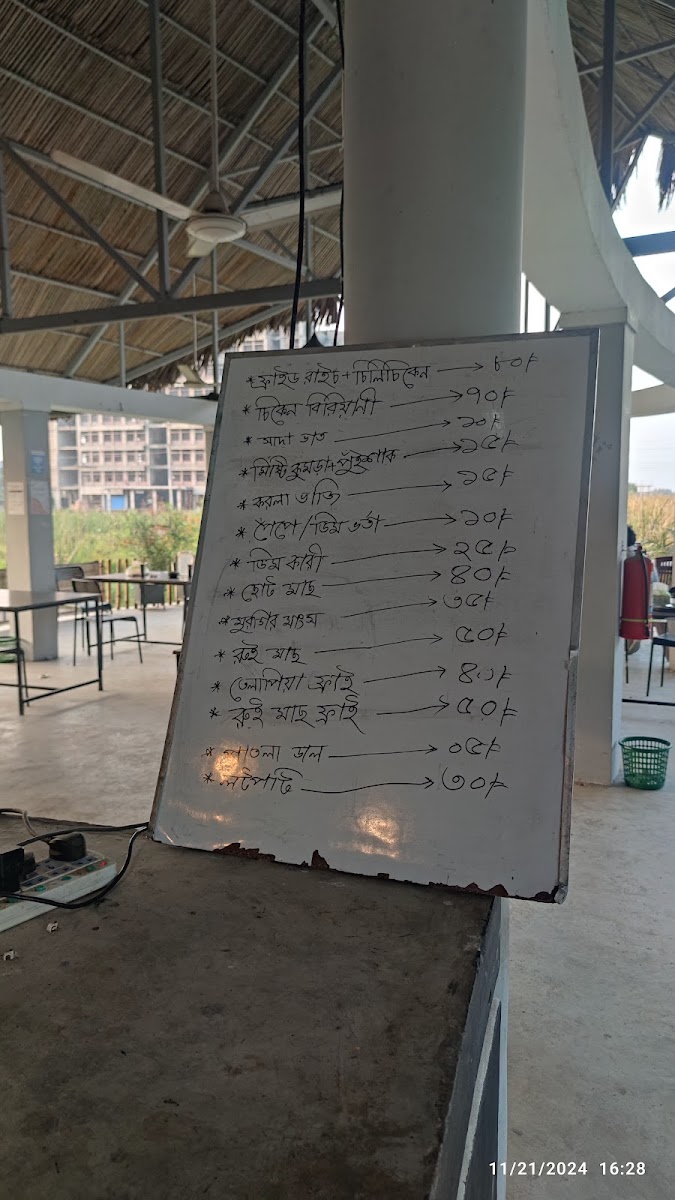 * ফ্রাইড রাইচ + চিলি চিকেন → ৮০/=
* চিকেন বিরিয়ানী → ৭০/=
* সাদা ভাত → ১০/=
* মিষ্টি কুমড়া + পুঁইশাক → ১৫/=
* করলা ভাজি → ১৫/=
* পেঁপে / ডিম ভর্তা → ১০/=
* ডিম কারী → ২৫/=
* ছোট মাছ → ৪০/=
* মুরগির মাংস → ৩৫/=
* রুই মাছ → ৫০/=
* তেলাপিয়া ফ্রাই → ৪০/=
* রুই মাছ ফ্রাই → ৫০/=
* পাতলা ডাল → ০৫/=
* লটপটি → ৩০/=
11/21/2024 16:28